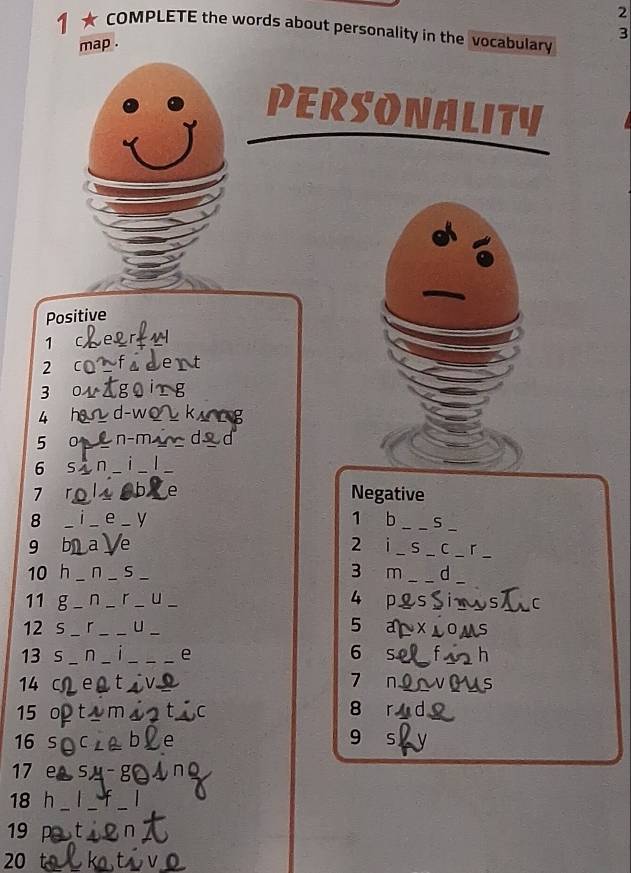 2
3
1 ★ COMPLETE the words about personality in the vocabulary
map.
PERSONALITY
Positive
1 cheerful
2 confident
3 outgoing
4 hard-working
5 open-minded
6 sin_i_l_
7 reliable
8 _i_e_y
9 brave
10 h_n_s_
11 g_n_r_u_
12 s_r__u_
13 s_n_i___e
14 creative
15 optimistic
16 sociable
17 easy-going
18 h_l_f_l
19 patient
20 talkative
Negative
1 b__s_
2 i_s_c_r_
3 m__d_
4 pessimistic
5 anxious
6 selfish
7 nervous
8 rude
9 shy